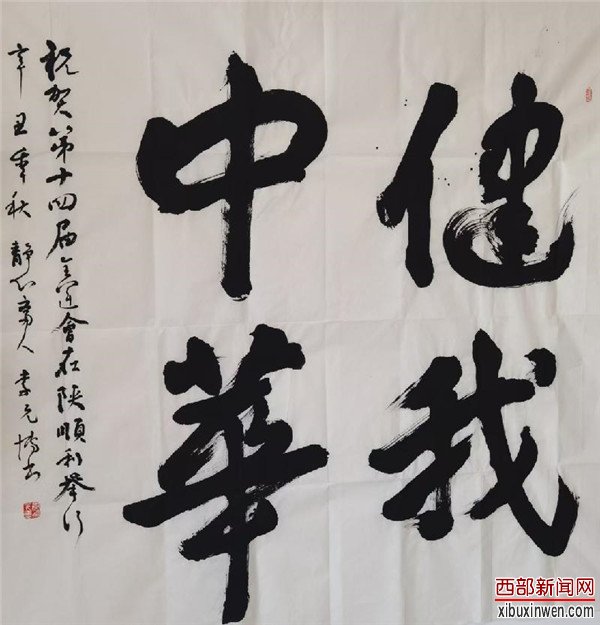 健我
中華
祝贺第十四届全运會在陕順利举行
辛丑季秋 静心斋人 李元博书
西部新闻网
xibuxinwen.com